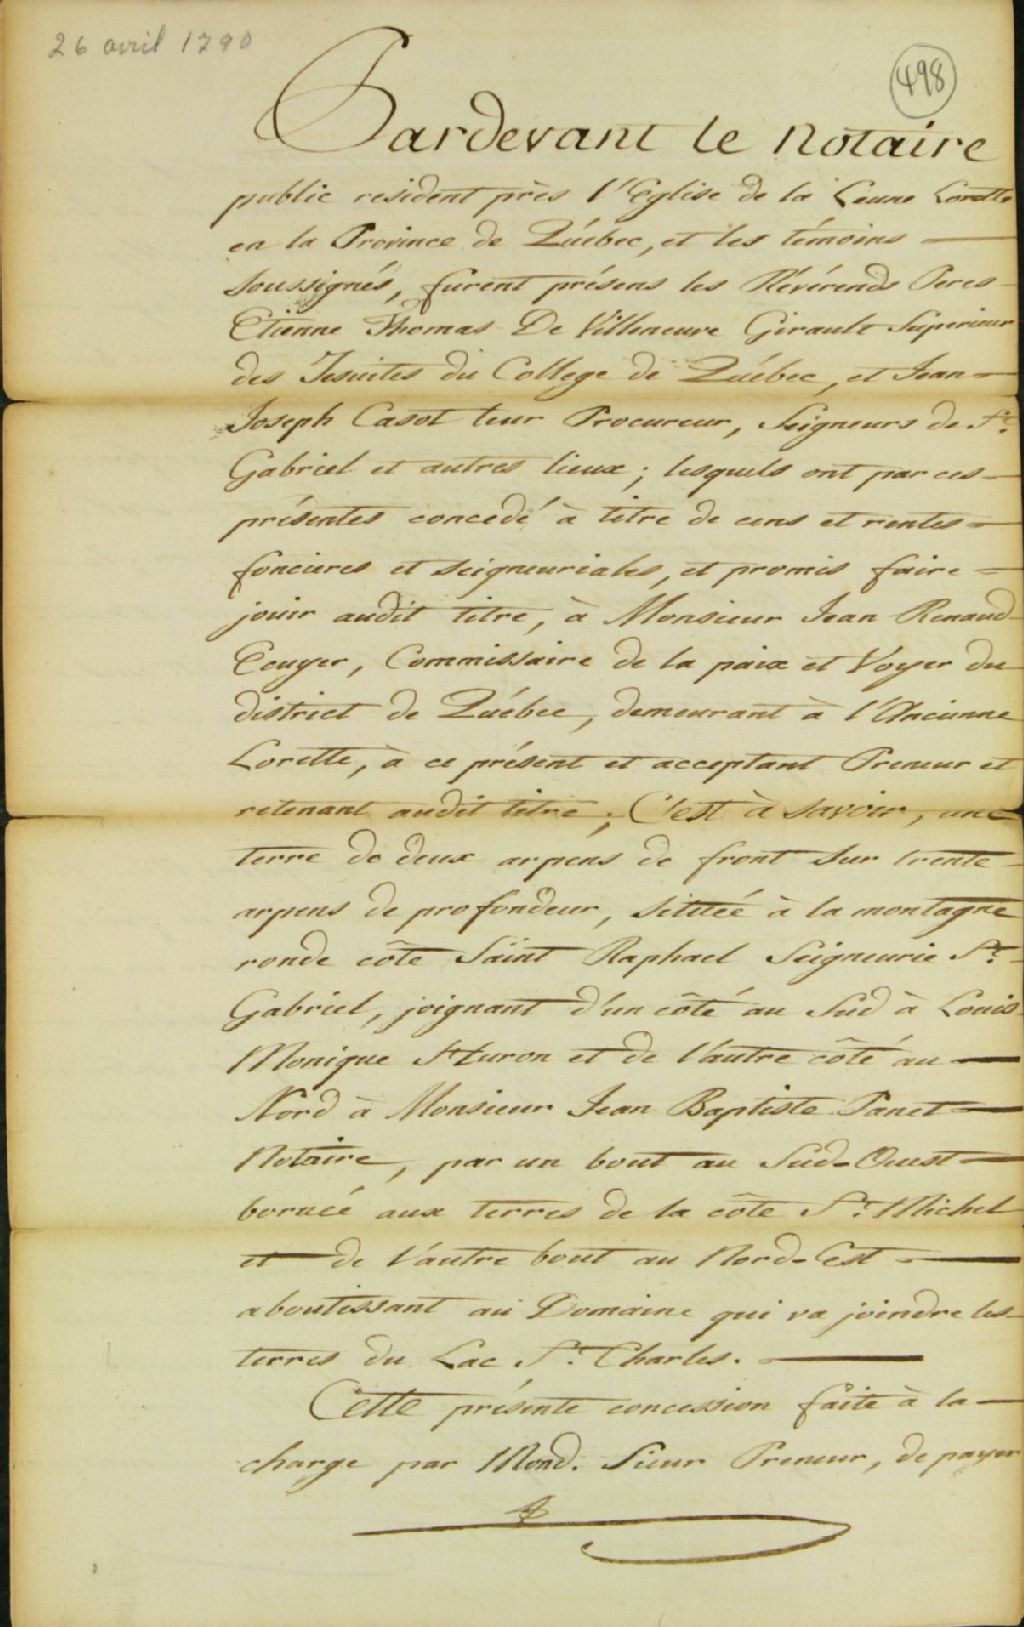 26 avril 1790
498
Pardevant le Notaire
public resident près l'Eglise de la Jeune Lorette
en la Province de Québec, et les témoins
soussignés, furent présens les Révérends Peres
Etienne Thomas De Villeneuve Girault Supérieur
des Jesuites du College de Québec, et Jean
Joseph Casot leur Procureur, Seigneurs de St.
Gabriel et autres lieux; lesquels ont par ces
présentes concedé à titre de cens et rentes
foncieres et seigneuriales, et promis faire
jouir audit titre, à Monsieur Jean Renaud
Ecuyer, Commissaire de la paix et Voyer du
district de Québec, demeurant à l'Ancienne
Lorette, à ce présent et acceptant Preneur et
retenant audit titre; C'est à savoir, une
terre de deux arpens de front sur trente
arpens de profondeur, située à la montagne
ronde côte Saint Raphael Seigneurie St.
Gabriel, joignant d'un côté au Sud à Louis
Monique Huron et de l'autre côté au
Nord à Monsieur Jean Baptiste Panet
Notaire, par un bout au Sud-Ouest
bornée aux terres de la côte St. Michel
et de l'autre bout au Nord-Est
aboutissant au Domaine qui va joindre les
terres du Lac St. Charles.
Cette présente concession faite à la
charge par Mond. Sieur Preneur, de payer